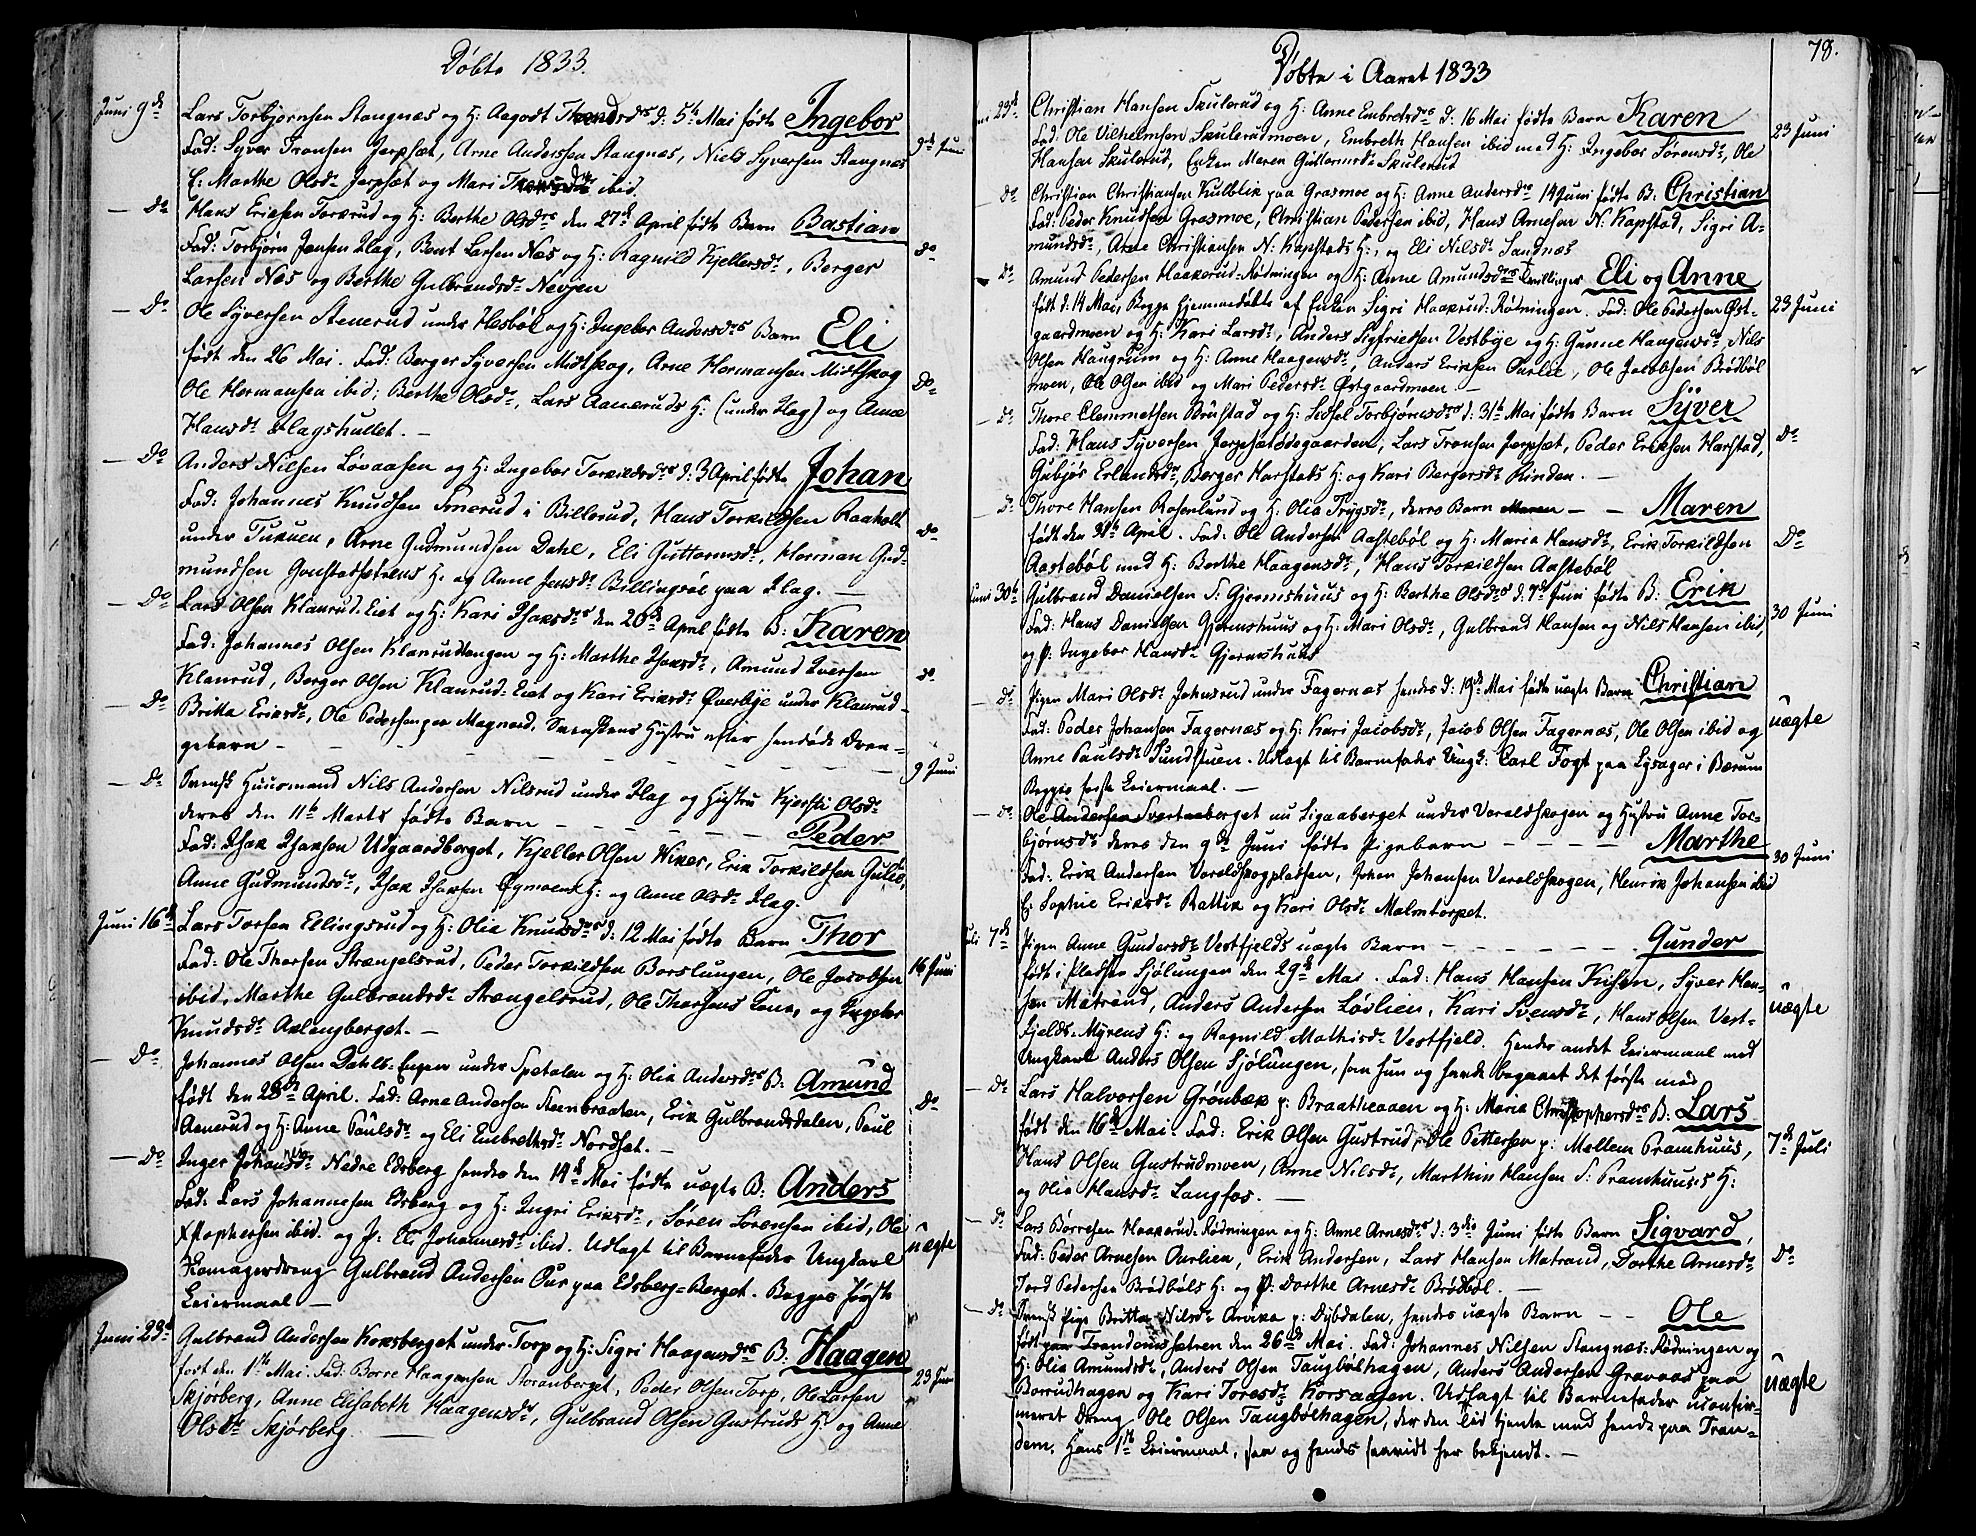 Døbte 1833.
Juni 9de Lars Torbjørnsen Stangnæs og H: Aagodt d: 5te Mai fødte Ingebor
Fad: Syver Tronsen Jerpset, Arne Andersen Stangnæs, Niels Syversen Stangnæs 9de Juni
E: Marthe Olsdr Jerpset og Mari ibid.
Do Hans Ericsen Torsrud og H: Berthe Olsdrs den 27de April fødte Barn Bastian
Fad: Torbjørn Jensen Flag, Bent Larsen Næs og H: Ragnild Kjellersdr, Berger Do
Larsen Næs og Berthe Gulbrandsdr Nevjen
Do Ole Syversen Stenerud under Hesbøl og H: Ingebor Andersdrs Barn Eli
født den 26 Mai. Fad: Berger Syversen Midtskog, Arne Hermansen Midtskog
Ole Hermansen ibid; Berthe Olsdr, Lars Aaneruds H: (under Flag) og Anne Do
Hansdr Flagshullet. —
Do Anders Nilsen Løvaasen og H: Ingebor Torkildsdrs d: 3 April fødte Johan
Fad: Johannes Knudsen Smerud i Billerud, Hans Torkildsen Raaholt
under Tukuen, Arne Gudmundsen Dahl, Eli Guttormsdr, Herman Gud- Do
mundsen H: og Anne Jensdr paa Flag. —
Do Lars Olsen Klanrud-Eiet og H: Kari Isaksdrs den 20de April fødte B: Karen
Fad: Johannes Olsen Klanrudengen og H: Marthe Isaksdr, Amund Iversen
Klanrud, Berger Olsen Klanrud-Eiet og Kari Eriksdr Øverbye under Klanrud - Do
Do Britta Eriksdr, Ole Pedersen paa Magnord, Svenskens Hustru efter hendøde Dren-
gebarn — — — 9 Juni
Do Svensk Huusmand Nils Andersen Nilsrud under Flag og Hustru Kjersti Olsdr
deres den 11te Marts fødte Barn — — — Peder
Fad: Isak Isaksen Udgaardberget, Kjeller Olsen Viker, Erik Torkildsen Gulli,
Anne Gudmundsdr, Isak Isaksen Øgmoens H: og Anne Olsdr Flag.
Juni 16de Lars Torsen Ellingsrud og H: Olia Knudsdrs d: 12 Mai fødte Barn Thor
Fad: Ole Thorsen Strængelsrud, Peder Torkildsen Borslungen, Ole Jacobsen 16 Juni
ibid, Marthe Gulbrandsdr Strængelsrud, Ole Thorsens Kone, og Ingebor
Knudsdr Aslangberget. —
Do Johannes Olsen Dahls-Engen under Spetalen og H: Olia Andersdrs B: Amund
født den 28de April. Fad: Arne Andersen Steenbraaten, Erik Gulbrandsdalen, Paul Do
Aanerud og H: Anne Paulsdr og Eli Embrethsdr Nordset. —
Do Inger Johansdr Nedre Edsberg hendes den 14de Mai fødte uægte B: Anders
Fad: Lars Johannesen Edsberg og H: Ingri Eriksdr, Søren Sørensen ibid, Ole
Xstophersen ibid. og P: Eli Johannesdr ibid. Udlagt til Barnefader Ungkarl uægte
Gulbrand Andersen Our paa Edsberg-Berget. Begges første
Leiermaal —
Juni 23de Gulbrand Andersen Korsberget under Torp og H: Sigri Haagensdrs B: Haagen
født den 1ste Mai. Fad: Borre Haagensen Storanberget, Peder Olsen Torp, Ole Larsen 23 Juni
Skjørberg, Anne Elisabeth Haagensdr, Gulbrand Olsen Gustruds H: og Anne
Olsdr Skjørberg. —
Døbte i Aaret 1833
78.
Juni 23de Christian Hansen Skulerud og H: Anne Embretsdrs d. 16 Mai fødte Barn Karen
Fad: Ole Vilhelmsen Skulerudmoen, Embreth Hansen ibid med H: Ingebor Sørensdr, Ole 23 Juni
Hansen Skulerud, Enken Maren Guttormsdr Skulerud
Do Christian Christiansen Kulblik paa Grasmoe og H: Anne Andersdrs 14 Juni fødte B: Christian
Fad: Peder Knudsen Grasmoe, Christian Pedersen ibid, Hans Arnesen N. Kapstad, Sigri A-
mundsdr, Arne Christiansen N. Kapstads H:, og Eli Nilsdr Sandnæs
Do Amund Pedersen Haakerud-Rødningen og H: Anne Amundsdrs Tvillinger Eli og Anne
født d. 14 Mai, Begge hjemmedøbte af Enken Sigri Haakrud-Rødningen. Fad: Ole Pedersen Øst- 23 Juni
gaardmoen og H: Kari Larsdr, Anders Sigfriedsen Vestbye og H: Gunne Haagensdr, Nils
Olsen Haugrum og H: Anne Haagensdr, Anders Eriksen Ourlie, Ole Jacobsen Brødbøl
moen, Ole Olsen ibid og Mari Pedersdr Østgaardmoen. —
Do Thore Clemmetsen Brustad og H: Sidsel Torbjørnsdrs d: 31te Mai fødte Barn Syver
Fad: Hans Syversen Jerpsetødegaarden, Lars Tronsen Jerpset, Peder Eriksen Harstad, Do
Gubjør Erlandsdr, Berger Harstads H: og Kari Bergersdr Linden. —
Do Thore Hansen Rosenlund og H: Olia Trygsdr, deres Barn — — Maren
født den April. Fad: Ole Andersen Aastebøl og H: Maria Hansdr, Erik Torkildsen Do
Aastebøl med H: Berthe Haagensdr, Hans Torkildsen Aastebøl
Juni 30te Gulbrand Danielsen S: Gjermshuus og H: Berthe Olsdrs d: 7de Juni fødte B: Erik
Fad: Hans Danielsen Gjermshuus og H: Mari Olsdr, Gulbrand Hansen og Nils Hansen ibid, 30 Juni
og P: Ingebor Hansdr Gjermshuus
Do Pigen Mari Olsdr Johnsrud under Fagernæs hendes d: 19de Mai fødte uægte Barn Christian
Fad: Peder Johansen Fagernæs og H: Kari Jacobsdr, Jacob Olsen Fagernæs, Ole Olsen ibid og uægte
Anne Paulsdr Sundstuen. Udlagt til Barnefader Ungk: Carl Fogt paa Lysager i Bærum
Begges første Leiermaal. —
Do Ole Andersen Svartnaberget nu Ligaaberget under Varaldskogen og Hustru Anne Tor-
bjørnsdr deres den 9de Juni fødte Pigebarn — — — Marthe
Fad: Erik Andersen Varaldskogpladsen, Johan Johansen Varaldskogen, Henrik Johansen ibid 30 Juni
E: Sophie Eriksdr Rattik og Kari Olsdr Malmtorpet.
Juli 7de Pigen Anne Gundersdr Vestfjelds uægte Barn — — — Gunder
født i Pladsen Sjølungen den 29de Mai. Fad: Hans Hansen Kusen, Syver Han-
sen Matrand, Anders Andersen Løvlien, Kari Svensdr, Hans Olsen Vest- uægte
fjelds-Myrens H: og Ragnild Mathisdr Vestfjeld. Hendes andet Leiermaal med
Ungkarl Anders Olsen Sjølungen, som hun og havde begaaet det første med
Do Lars Halvorsen Grønbæk p: Braatheaaen og H: Maria Christophersdrs B: Lars
født den 16de Mai. Fad: Erik Olsen Gustrud, Ole Pettersen p: Mellem Pramhuus, 7de Juli
Hans Olsen Gustrudmoen, Anne Nilsdr, Marthin Hansen S: Pramhuus's H:
og Olia Hansdr Langfos. —
Do Lars Børresen Haakerud-Rødningen og H: Anne Arnesdrs d: 3die Juni fødte Barn Sigvard,
Fad: Peder Arnesen Ourlien, Erik Andersen, Lars Hansen Matrand, Dorthe Arnesdr Do
Tord Pedersen Brødbøls H: og P: Dorthe Arnesdr Brødbøl. —
Do Svensk Pige Britta Nilsdr Arvika p: Dybdalen, hendes uægte Barn — — Ole
født Trandemssætren den 26de Mai. Fad: Johannes Nilsen Stangnæs-Rødningen og
H: Olia Amundsdr, Anders Olsen Tangbølhagen, Anders Andersen Gravaas paa uægte
Borrudhagen og Kari Toresdr Korsaasen. Udlagt til Barnefader uconfir-
meret Dreng Ole Olsen Tangbølhagen, der den Tid tjente med hende paa Tran-
dem. Hans 1ste Leiermaal, saa og hendes saavidt her bekjendt. —